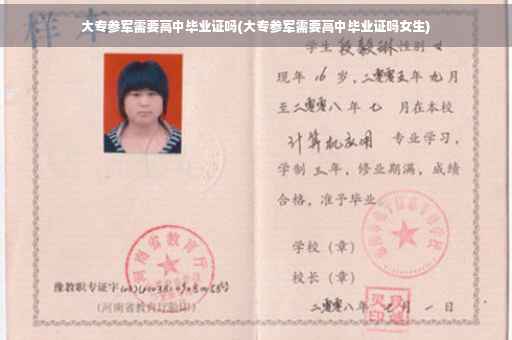 大专参军需要高中毕业证吗(大专参军需要高中毕业证吗女生)
样本
学生段毅琳性别女
现年16岁，二零零五年九月
至二零零八年七月在本校
计算机应用 专业学习，
学制三年，修业期满，成绩
合格，准予毕业
学校（章）
校长（章）
二零零八年七月一日
河南省教育厅
豫教职专证字
（河南省教育厅验印）